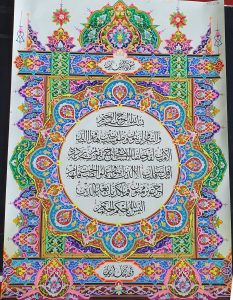 بسم الله الرحمن الرحيم
والتين والزيتون وطور سينين وهذا البلد
الأمين لقد خلقنا الإنسان في أحسن تقويم ثم رددناه
أسفل سافلين إلا الذين آمنوا وعملوا الصالحات فلهم
أجر غير ممنون فما يكذبك بعد بالدين
أليس الله بأحكم الحاكمين